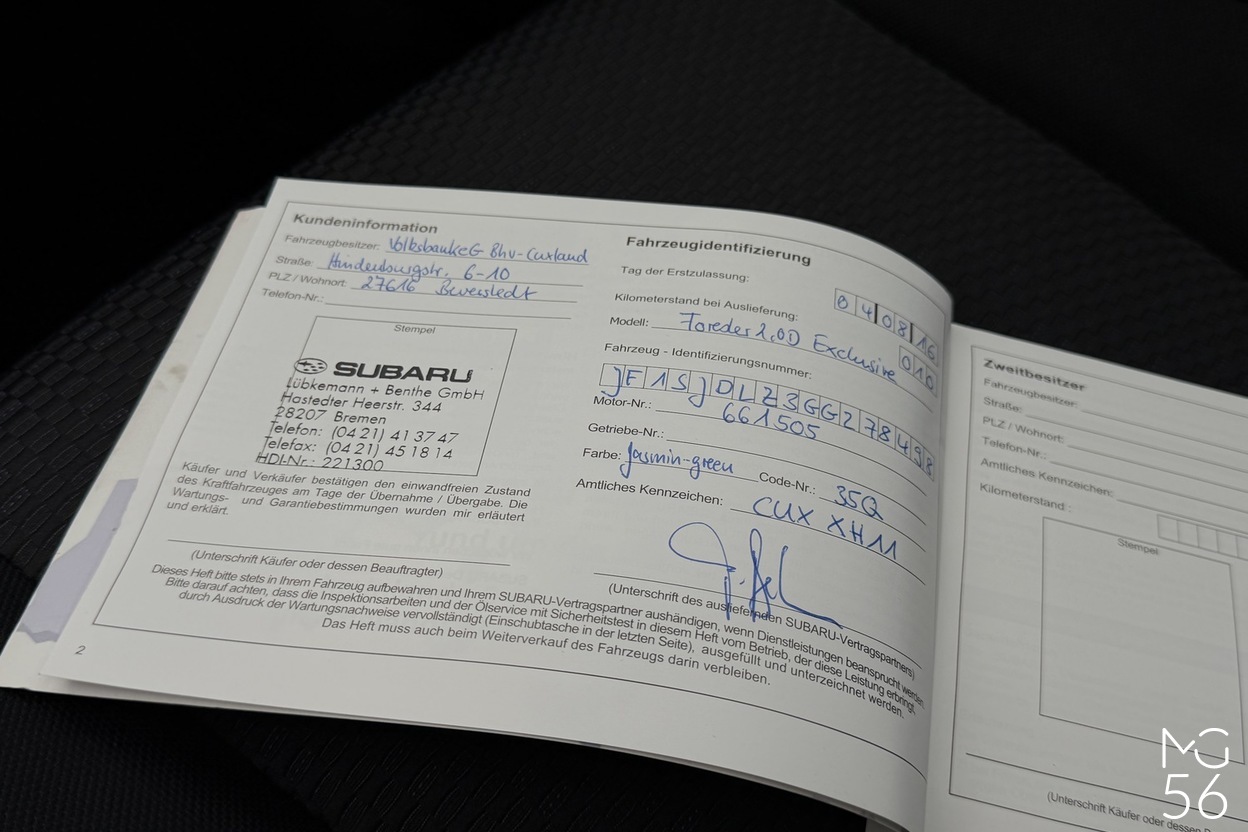 Kundeninformation
Fahrzeugbesitzer: Volksbank eG Bhv-Cuxland
Straße: Hindenburgstr. 6-10
PLZ / Wohnort: 27616 Beverstedt
Telefon-Nr.:
Stempel
SUBARU
Lübkemann + Benthe GmbH
Hastedter Heerstr. 344
28207 Bremen
Telefon: (04 21) 41 37 47
Telefax: (04 21) 45 18 14
HDI-Nr.: 221300
Käufer und Verkäufer bestätigen den einwandfreien Zustand
des Kraftfahrzeuges am Tage der Übernahme / Übergabe. Die
Wartungs- und Garantiebestimmungen wurden mir erläutert
und erklärt.
(Unterschrift Käufer oder dessen Beauftragter)
Fahrzeugidentifizierung
Tag der Erstzulassung: 04 08 16
Kilometerstand bei Auslieferung: 010
Modell: Forester 2,0D Exclusive
Fahrzeug - Identifizierungsnummer:
JF1SJDLZ3GG278498
Motor-Nr.: 661505
Getriebe-Nr.:
Farbe: Jasmin-green Code-Nr.: 35Q
Amtliches Kennzeichen: CUX XH11
(Unterschrift des ausliefernden SUBARU-Vertragspartners)
Dieses Heft bitte stets in Ihrem Fahrzeug aufbewahren und Ihrem SUBARU-Vertragspartner aushändigen, wenn Dienstleistungen beansprucht werden.
Bitte darauf achten, dass die Inspektionsarbeiten und der Ölservice mit Sicherheitstest in diesem Heft vom Betrieb, der diese Leistung erbringt,
durch Ausdruck der Wartungsnachweise vervollständigt (Einschubtasche in der letzten Seite), ausgefüllt und unterzeichnet werden.
Das Heft muss auch beim Weiterverkauf des Fahrzeugs darin verbleiben.
2
Zweitbesitzer
Fahrzeugbesitzer:
Straße:
PLZ / Wohnort:
Telefon-Nr.:
Amtliches Kennzeichen:
Kilometerstand :
Stempel
(Unterschrift Käufer oder dessen
MG
56